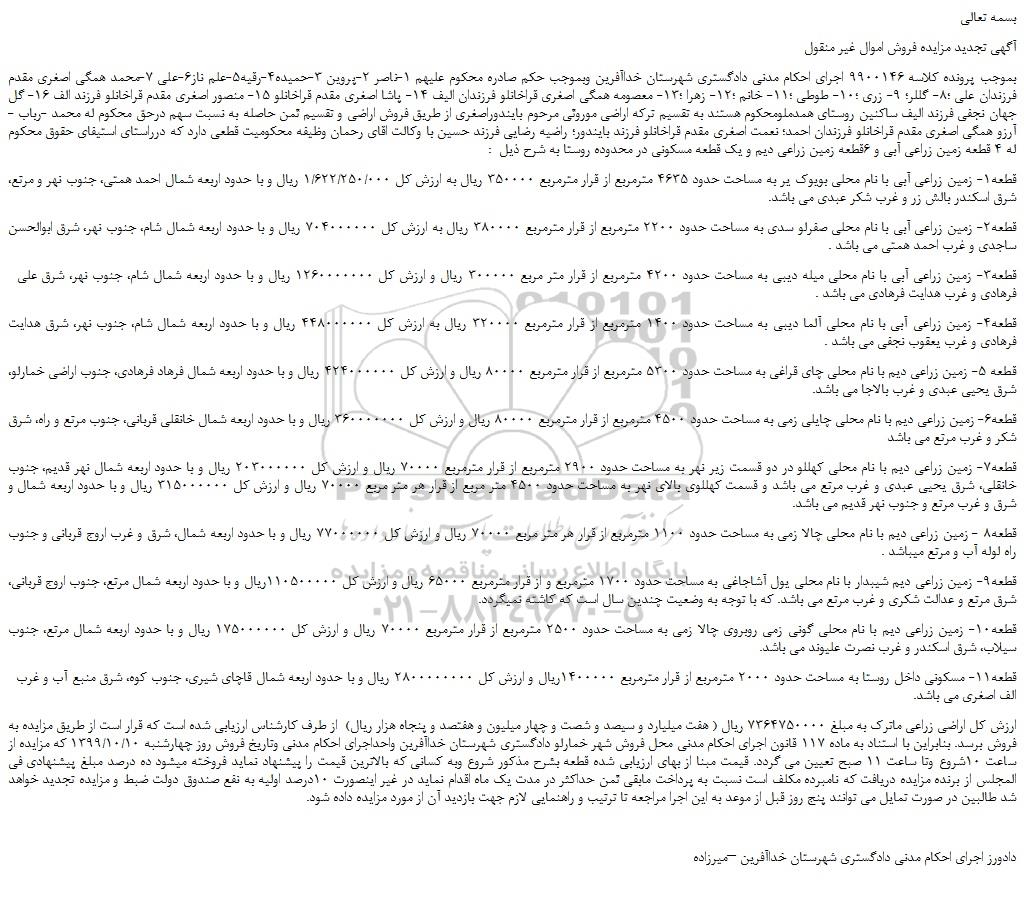 بسمه تعالی
آگهی تجدید مزایده فروش اموال غیر منقول
بموجب پرونده کلاسه ۹۹۰۰۱۴۶ اجرای احکام مدنی دادگستری شهرستان خداآفرین وبموجب حکم صادره محکوم علیهم ۱-ناصر ۲-پروین ۳-حمیده۴-رقیه۵-علم ناز۶-علی ۷-محمد همگی اصغری مقدم
فرزندان علی ؛۸- گللر؛ ۹- زری ؛۱۰- طوطی ؛۱۱- خانم ؛۱۲- زهرا ؛۱۳- معصومه همگی اصغری قراخانلو فرزندان الیف ۱۴- پاشا اصغری مقدم قراخانلو ۱۵- منصور اصغری مقدم قراخانلو فرزند الف ۱۶- گل
جهان نجفی فرزند الیف ساکنین روستای همدملومحکوم هستند به تقسیم ترکه اراضی موروثی مرحوم بایندوراصغری از طریق فروش اراضی و تقسیم ثمن حاصله به نسبت سهم درحق محکوم له محمد -رباب -
آرزو همگی اصغری مقدم قراخانلو فرزندان احمد؛ نعمت اصغری مقدم قراخانلو فرزند بایندور؛ راضیه رضایی فرزند حسین با وکالت اقای رحمان وظیفه محکومیت قطعی دارد که درراستای استیفای حقوق محکوم
له ۴ قطعه زمین زراعی آبی و ۶قطعه زمین زراعی دیم و یک قطعه مسکونی در محدوده روستا به شرح ذیل :
قطعه۱- زمین زراعی آبی با نام محلی بویوک یر به مساحت حدود ۴۶۳۵ مترمربع از قرار مترمربع ۳۵۰۰۰۰ ریال به ارزش کل ۱/۶۲۲/۲۵۰/۰۰۰ ریال و با حدود اربعه شمال احمد همتی، جنوب نهر و مرتع،
شرق اسکندر بالش زر و غرب شکر عبدی می باشد.
قطعه۲- زمین زراعی آبی با نام محلی صفرلو سدی به مساحت حدود ۲۲۰۰ مترمربع از قرار مترمربع ۳۸۰۰۰۰ ریال به ارزش کل ۷۰۴۰۰۰۰۰۰ ریال و با حدود اربعه شمال شام، جنوب نهر، شرق ابوالحسن
ساجدی و غرب احمد همتی می باشد .
قطعه۳- زمین زراعی آبی با نام محلی میله دیبی به مساحت حدود ۴۲۰۰ مترمربع از قرار متر مربع ۳۰۰۰۰۰ ریال و ارزش کل ۱۲۶۰۰۰۰۰۰۰ ریال و با حدود اربعه شمال شام، جنوب نهر، شرق علی
فرهادی و غرب هدایت فرهادی می باشد .
قطعه۴- زمین زراعی آبی با نام محلی آلما دیبی به مساحت حدود ۱۴۰۰ مترمربع از قرار مترمربع ۳۲۰۰۰۰ ریال به ارزش کل ۴۴۸۰۰۰۰۰۰ ریال و با حدود اربعه شمال شام، جنوب نهر، شرق هدایت
فرهادی و غرب یعقوب نجفی می باشد .
قطعه ۵- زمین زراعی دیم با نام محلی چای قراغی به مساحت حدود ۵۳۰۰ مترمربع از قرار مترمربع ۸۰۰۰۰ ریال و ارزش کل ۴۲۴۰۰۰۰۰۰ ریال و با حدود اربعه شمال فرهاد فرهادی، جنوب اراضی خمارلو،
شرق یحیی عبدی و غرب بالاجا می باشد.
قطعه۶- زمین زراعی دیم با نام محلی چایلی زمی به مساحت حدود ۴۵۰۰ مترمربع از قرار مترمربع ۸۰۰۰۰ ریال و ارزش کل ۳۶۰۰۰۰۰۰۰ ریال و با حدود اربعه شمال خانقلی قربانی، جنوب مرتع و راه، شرق
شکر و غرب مرتع می باشد
قطعه۷- زمین زراعی دیم با نام محلی کهللو در دو قسمت زیر نهر به مساحت حدود ۲۹۰۰ مترمربع از قرار مترمربع ۷۰۰۰۰ ریال و ارزش کل ۲۰۳۰۰۰۰۰۰ ریال و با حدود اربعه شمال نهر قدیم، جنوب
خانقلی، شرق یحیی عبدی و غرب مرتع می باشد و قسمت کهللوی بالای نهر به مساحت حدود ۴۵۰۰ متر مربع از قرار هر متر مربع ۷۰۰۰۰ ریال و ارزش کل ۳۱۵۰۰۰۰۰۰ ریال و با حدود اربعه شمال و
شرق و غرب مرتع و جنوب نهر قدیم می باشد.
قطعه۸ - زمین زراعی دیم با نام محلی چالا زمی به مساحت حدود ۱۱۰۰ مترمربع از قرار هر متر مربع ۷۰۰۰۰ ریال و ارزش کل ۷۷۰۰۰۰۰۰ ریال و با حدود اربعه شمال، شرق و غرب اروج قربانی و جنوب
راه لوله آب و مرتع میباشد .
قطعه۹- زمین زراعی دیم شیبدار با نام محلی یول آشاجاغی به مساحت حدود ۱۷۰۰ مترمربع و از قرار مترمربع ۶۵۰۰۰ ریال و ارزش کل ۱۱۰۵۰۰۰۰۰ریال و با حدود اربعه شمال مرتع، جنوب اروج قربانی،
شرق مرتع و عدالت شکری و غرب مرتع می باشد. که با توجه به وضعیت چندین سال است که کاشته نمیگردد.
قطعه۱۰- زمین زراعی دیم با نام محلی گونی زمی روبروی چالا زمی به مساحت حدود ۲۵۰۰ مترمربع از قرار مترمربع ۷۰۰۰۰ ریال و ارزش کل ۱۷۵۰۰۰۰۰۰ ریال و با حدود اربعه شمال مرتع، جنوب
سیلاب، شرق اسکندر و غرب نصرت علیوند می باشد.
قطعه۱۱- مسکونی داخل روستا به مساحت حدود ۲۰۰۰ مترمربع از قرار مترمربع ۱۴۰۰۰۰۰ریال و ارزش کل ۲۸۰۰۰۰۰۰۰۰ ریال و با حدود اربعه شمال قاچای شیری، جنوب کوه، شرق منبع آب و غرب
الف اصغری می باشد.
ارزش کل اراضی زراعی ماترک به مبلغ ۷۳۶۴۷۵۰۰۰۰ ریال ( هفت میلیارد و سیصد و شصت و چهار میلیون و هفتصد و پنجاه هزار ریال) از طرف کارشناس ارزیابی شده است که قرار است از طریق مزایده به
فروش برسد. بنابراین با استناد به ماده ۱۱۷ قانون اجرای احکام مدنی محل فروش شهر خمارلو دادگستری شهرستان خداآفرین واحداجرای احکام مدنی وتاریخ فروش روز چهارشنبه ۱۳۹۹/۱۰/۱۰ که مزایده از
ساعت ۱۰شروع وتا ساعت ۱۱ صبح تعیین می گردد. قیمت مبنا از بهای ارزیابی شده قطعه بشرح مذکور شروع وبه کسانی که بالاترین قیمت را پیشنهاد نماید فروخته میشود ده درصد مبلغ پیشنهادی فی
المجلس از برنده مزایده دریافت که نامبرده مکلف است نسبت به پرداخت مابقی ثمن حداکثر در مدت یک ماه اقدام نماید در غیر اینصورت ۱۰درصد اولیه به نفع صندوق دولت ضبط و مزایده تجدید خواهد
شد طالبین در صورت تمایل می توانند پنج روز قبل از موعد به این اجرا مراجعه تا ترتیب و راهنمایی لازم جهت بازدید آن از مورد مزایده داده شود.
دادورز اجرای احکام مدنی دادگستری شهرستان خداآفرین –میرزاده
ParsNamadData
پایگاه اطلاع رسانی مناقصه و مزایده
۰۲۱-۸۸۳۴۹۶۷۰-۵